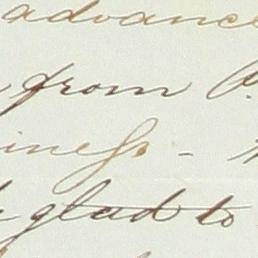 advance
from
iness -
glad to